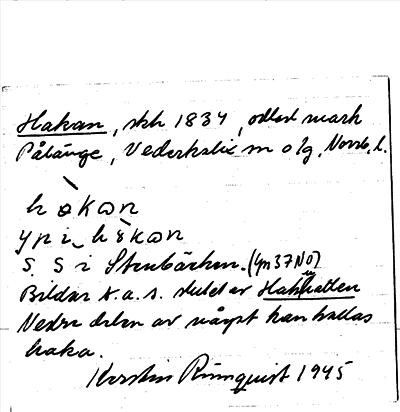 Hakan, skh 1834, odlad mark
Pålänge, Nederkalix sn o lg, Norrb. l.
hakan
i hakan
S. S i Stenbäcken. (Yn37NO)
Bildar t.a.s. del av Hakhatten
Nedre delen av något kan kallas
haka.
Kerstin Rönnquist 1945